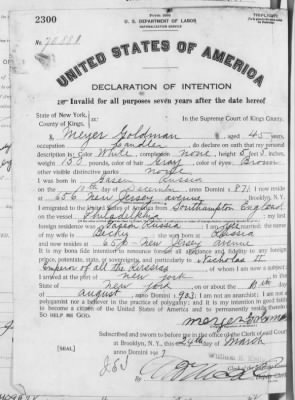 2300
Form 2203
U. S. DEPARTMENT OF LABOR
NATURALIZATION SERVICE
TRIPLICATE
No. 70881
UNITED STATES OF AMERICA
DECLARATION OF INTENTION
Invalid for all purposes seven years after the date hereof
State of New York,
County of Kings,
In the Supreme Court of Kings County.
I, Meyer Goldman, aged 45 years,
occupation Candler, do declare on oath that my personal
description is: Color White, complexion none, height 5 feet 3 inches,
weight 130 pounds, color of hair Gray, color of eyes Brown
other visible distinctive marks none
I was born in Sasen Russia
on the 10th day of December, anno Domini 1871; I now reside
at 656 New Jersey avenue, Brooklyn, N.Y.
I emigrated to the United States of America from Southampton England
on the vessel Philadelphia; my last
foreign residence was Sasen Russia; I am married; the name
of my wife is Becky; she was born at Russia
and now resides at 656 New Jersey Avenue
It is my bona fide intention to renounce forever all allegiance and fidelity to any foreign
prince, potentate, state, or sovereignty, and particularly to Nicholas II
Emperor of all the Russias, of whom I am now a subject;
I arrived at the port of New York, in the
State of New York, on or about the day
of August, anno Domini 1903; I am not an anarchist; I am not a
polygamist nor a believer in the practice of polygamy; and it is my intention in good faith
to become a citizen of the United States of America and to permanently reside therein:
SO HELP ME GOD.
Meyer Goldman
Subscribed and sworn to before me in the office of the Clerk of said Court
at Brooklyn, N.Y., this 24th day of March
anno Domini 191
[SEAL]
Clerk